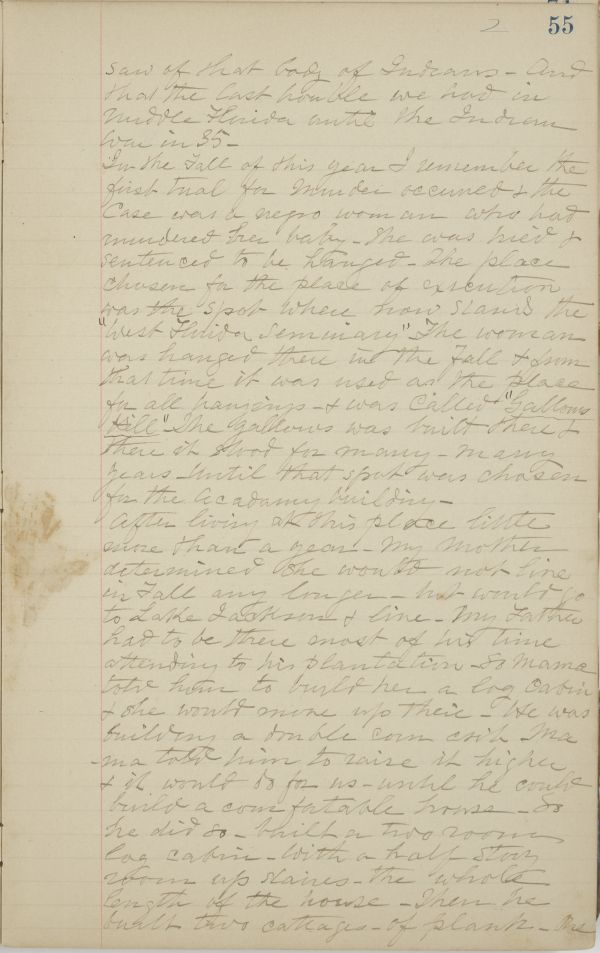 2 55
saw of that body of Indians - And
that the last trouble we had in
Middle Florida until the Indian
War in 35 -
In the Fall of this year I remember the
first trial for Murder occured & the
Case was a negro woman who had
murdered her baby - She was tried &
sentenced to be hanged - The place
chosen for the place of execution
was the spot where now stands the
"West Florida Seminary" The woman
was hanged there in the Fall & from
that time it was used as the place
for all hangings - & was called "Gallows
Hill" - The Gallows was built there &
there it stood for many - many
years - until that spot was chosen
for the Acadamy building -
After living at this place little
more than a year - My Mother
determined she would not live
in Tall any longer - but would go
to Lake Jackson & live - My Father
had to be there most of his time
attending to his plantation - So Mama
told him to build her a log cabin
& she would move up their - He was
building a double corn crib Ma
ma told him to raise it higher
& it would do for us - until he could
build a comfatable house - So
he did so - built a two room
log cabin - with a half story
room up staires - the whole
length of the house - Then he
built two cottages - of plank - One